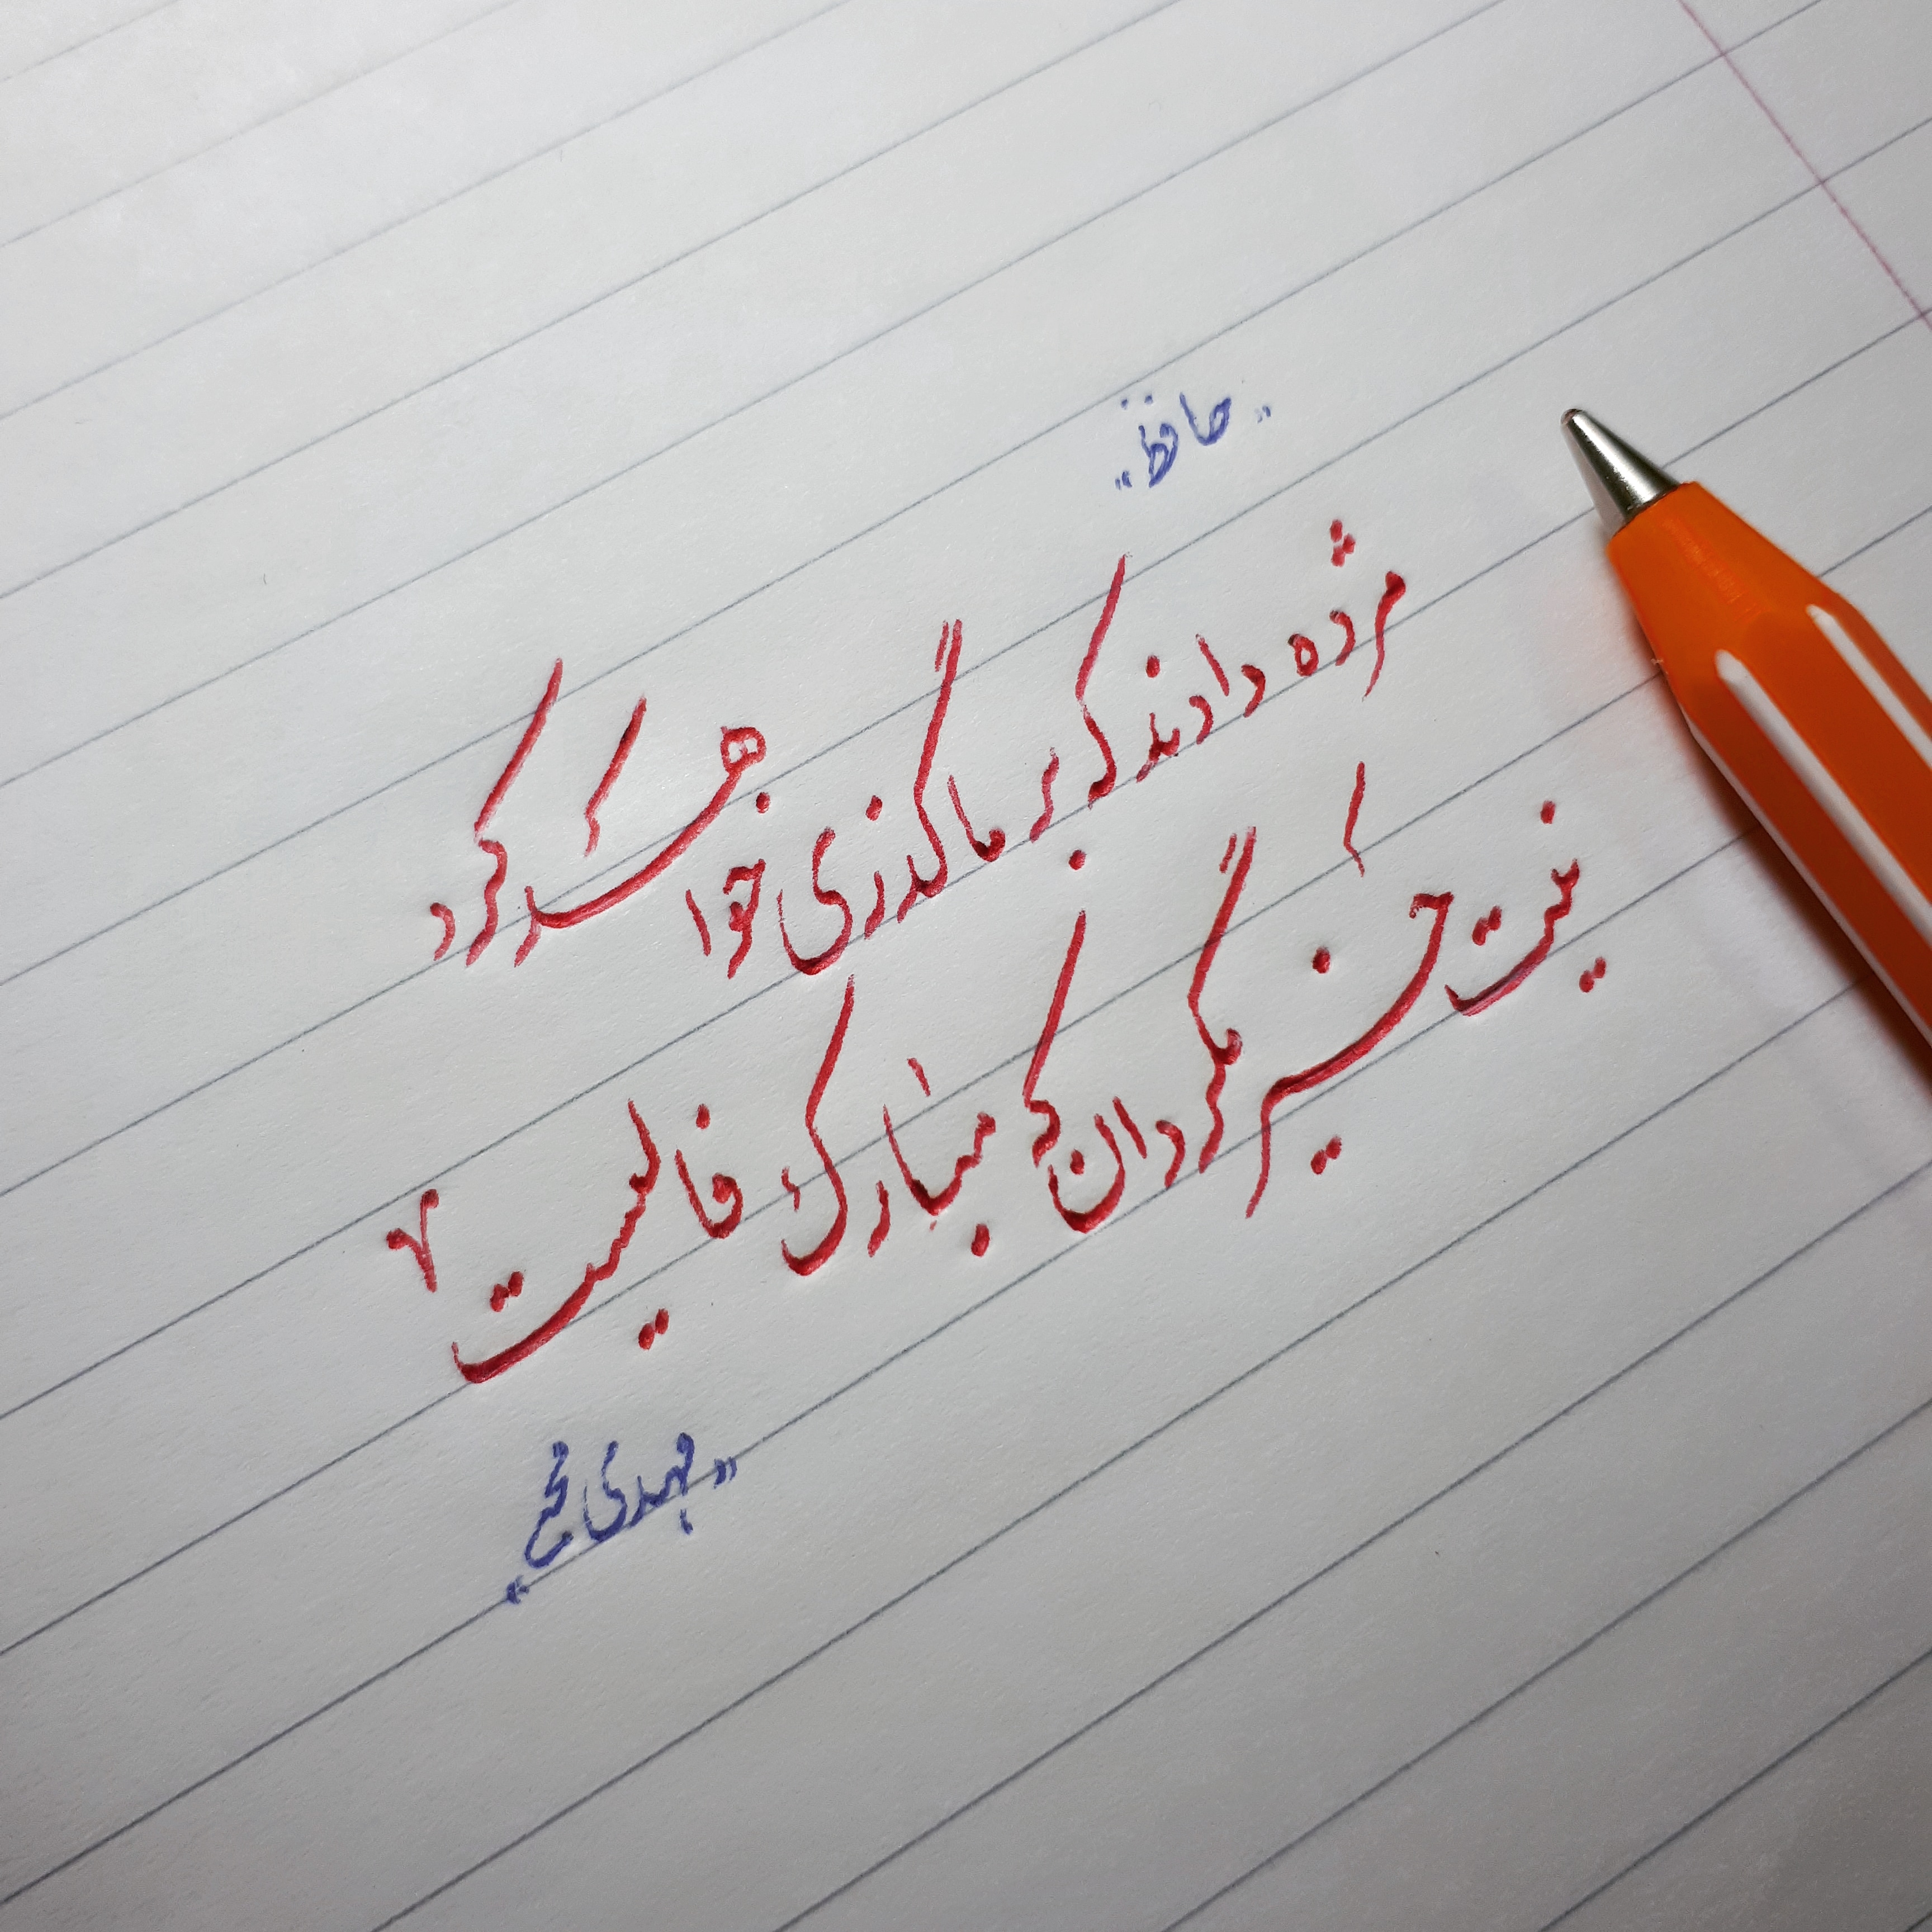 "حافظ"
مژده دادند که بر ما گذری خواهی کرد
نیت خیر مگردان که مبارک فالیست
"مهدی